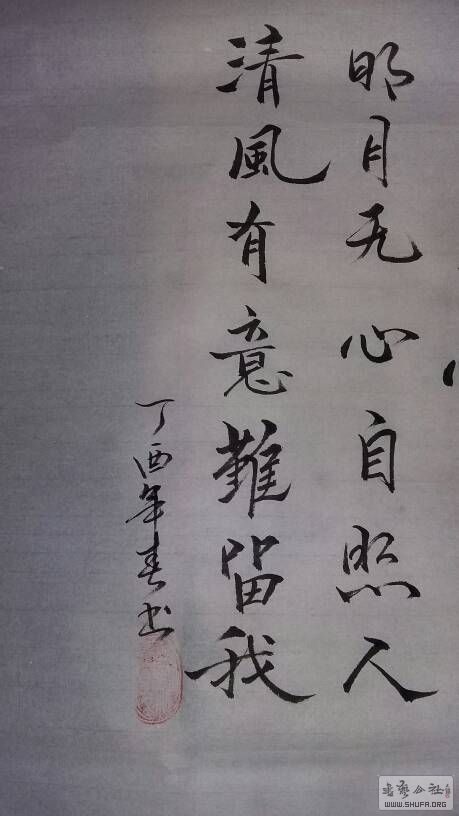 明月无心自照人
清風有意難留我
丁酉年春书
書艺公社
WWW.SHUFA.ORG